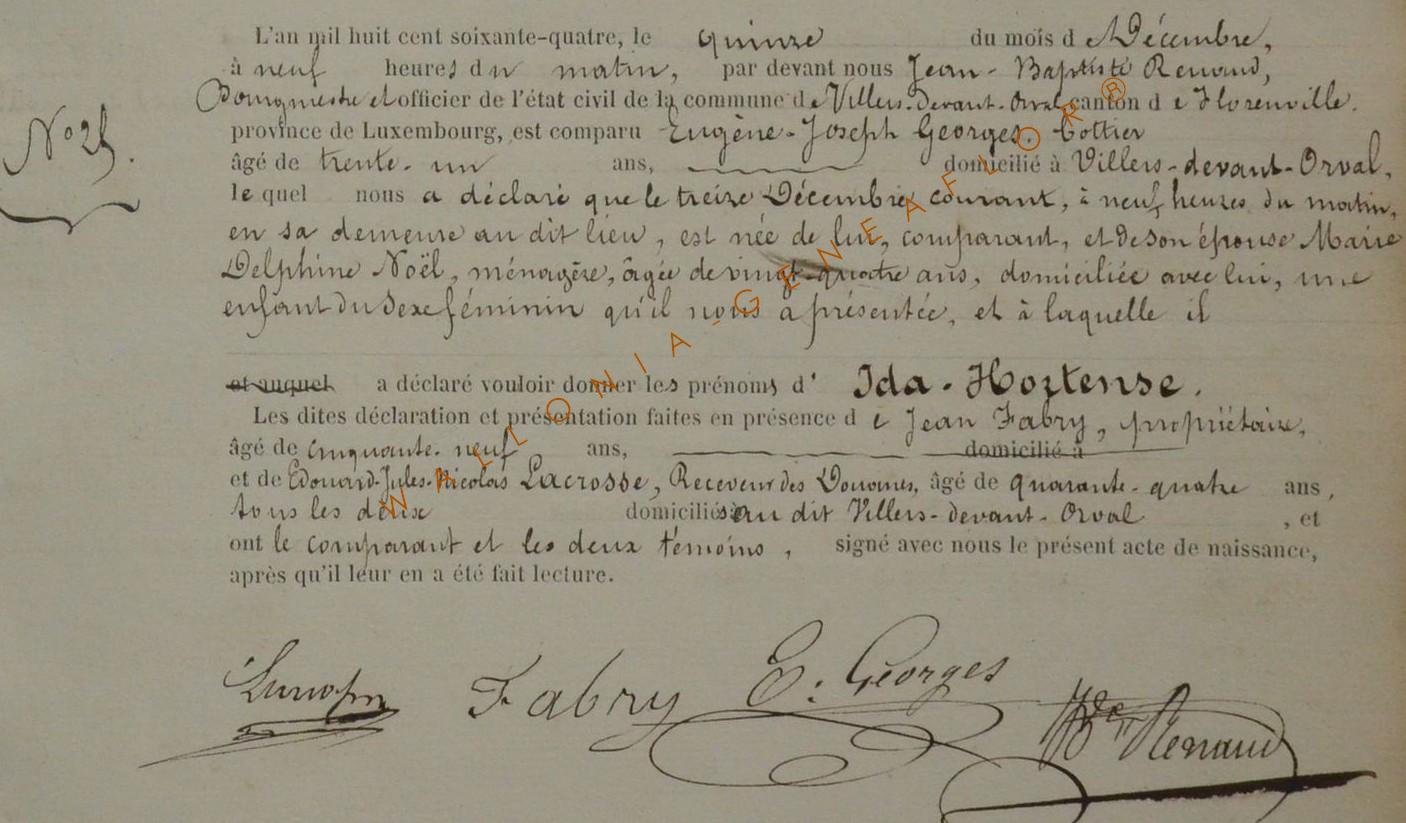 L'an mil huit cent soixante-quatre, le quinze du mois de Décembre,
à neuf heures du matin, par devant nous Jean-Baptiste Renaud,
Bourgmestre et officier de l'état civil de la commune de Villers-devant-Orval canton de Florenville.
province de Luxembourg, est comparu Eugène-Joseph Georges, Cottier
N° 25.
âgé de trente-un ans, domicilié à Villers-devant-Orval,
lequel nous a déclaré que le treize Décembre courant, à neuf heures du matin,
en sa demeure au dit lieu, est née de lui, comparant, et de son épouse Marie
Delphine Noël, ménagère, âgée de vingt-quatre ans, domiciliée avec lui, une
enfant du sexe féminin qu'il nous a présentée, et à laquelle il
et auquel a déclaré vouloir donner les prénoms d' Ida-Hortense.
Les dites déclaration et présentation faites en présence de Jean Fabry, propriétaire,
âgé de cinquante-neuf ans, domicilié à
et de Edouard-Jules-Nicolas Lacrosse, Receveur des Douanes, âgé de quarante-quatre ans,
tous les deux domiciliés au dit Villers-devant-Orval, et
ont le comparant et les deux témoins, signé avec nous le présent acte de naissance,
après qu'il leur en a été fait lecture.
Fabry E. Georges
Bte Renaud
WALLONIA-GENEAFLOR®